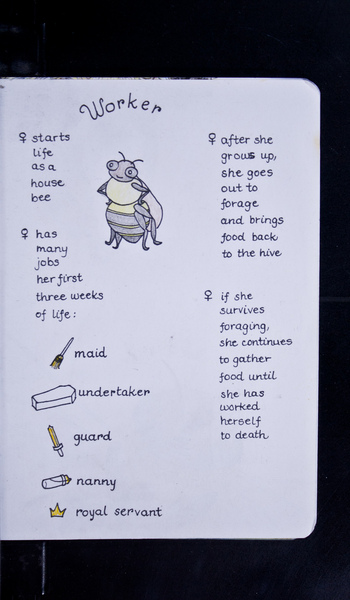 Worker
♀ starts
life
as a
house
bee
♀ has
many
jobs
her first
three weeks
of life:
maid
undertaker
guard
nanny
royal servant
♀ after she
grows up,
she goes
out to
forage
and brings
food back
to the hive
♀ if she
survives
foraging,
she continues
to gather
food until
she has
worked
herself
to death